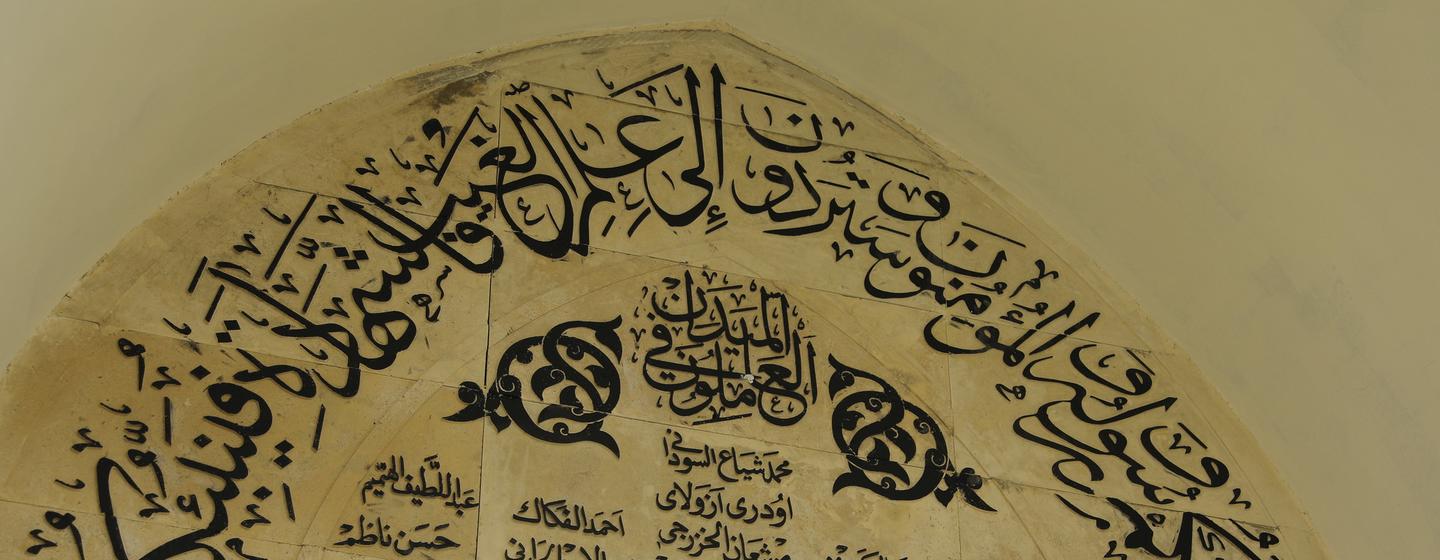 عملكم ورسوله والمؤمنون وستردون إلى علم الغيب والشهادة فينبئكم
العاملون في الميدان
محمد شياع السوداني
عبد اللطيف الهميم
اودري ازولاي
احمد الفكاك
حسن ناظم
مشعان الخزرجي